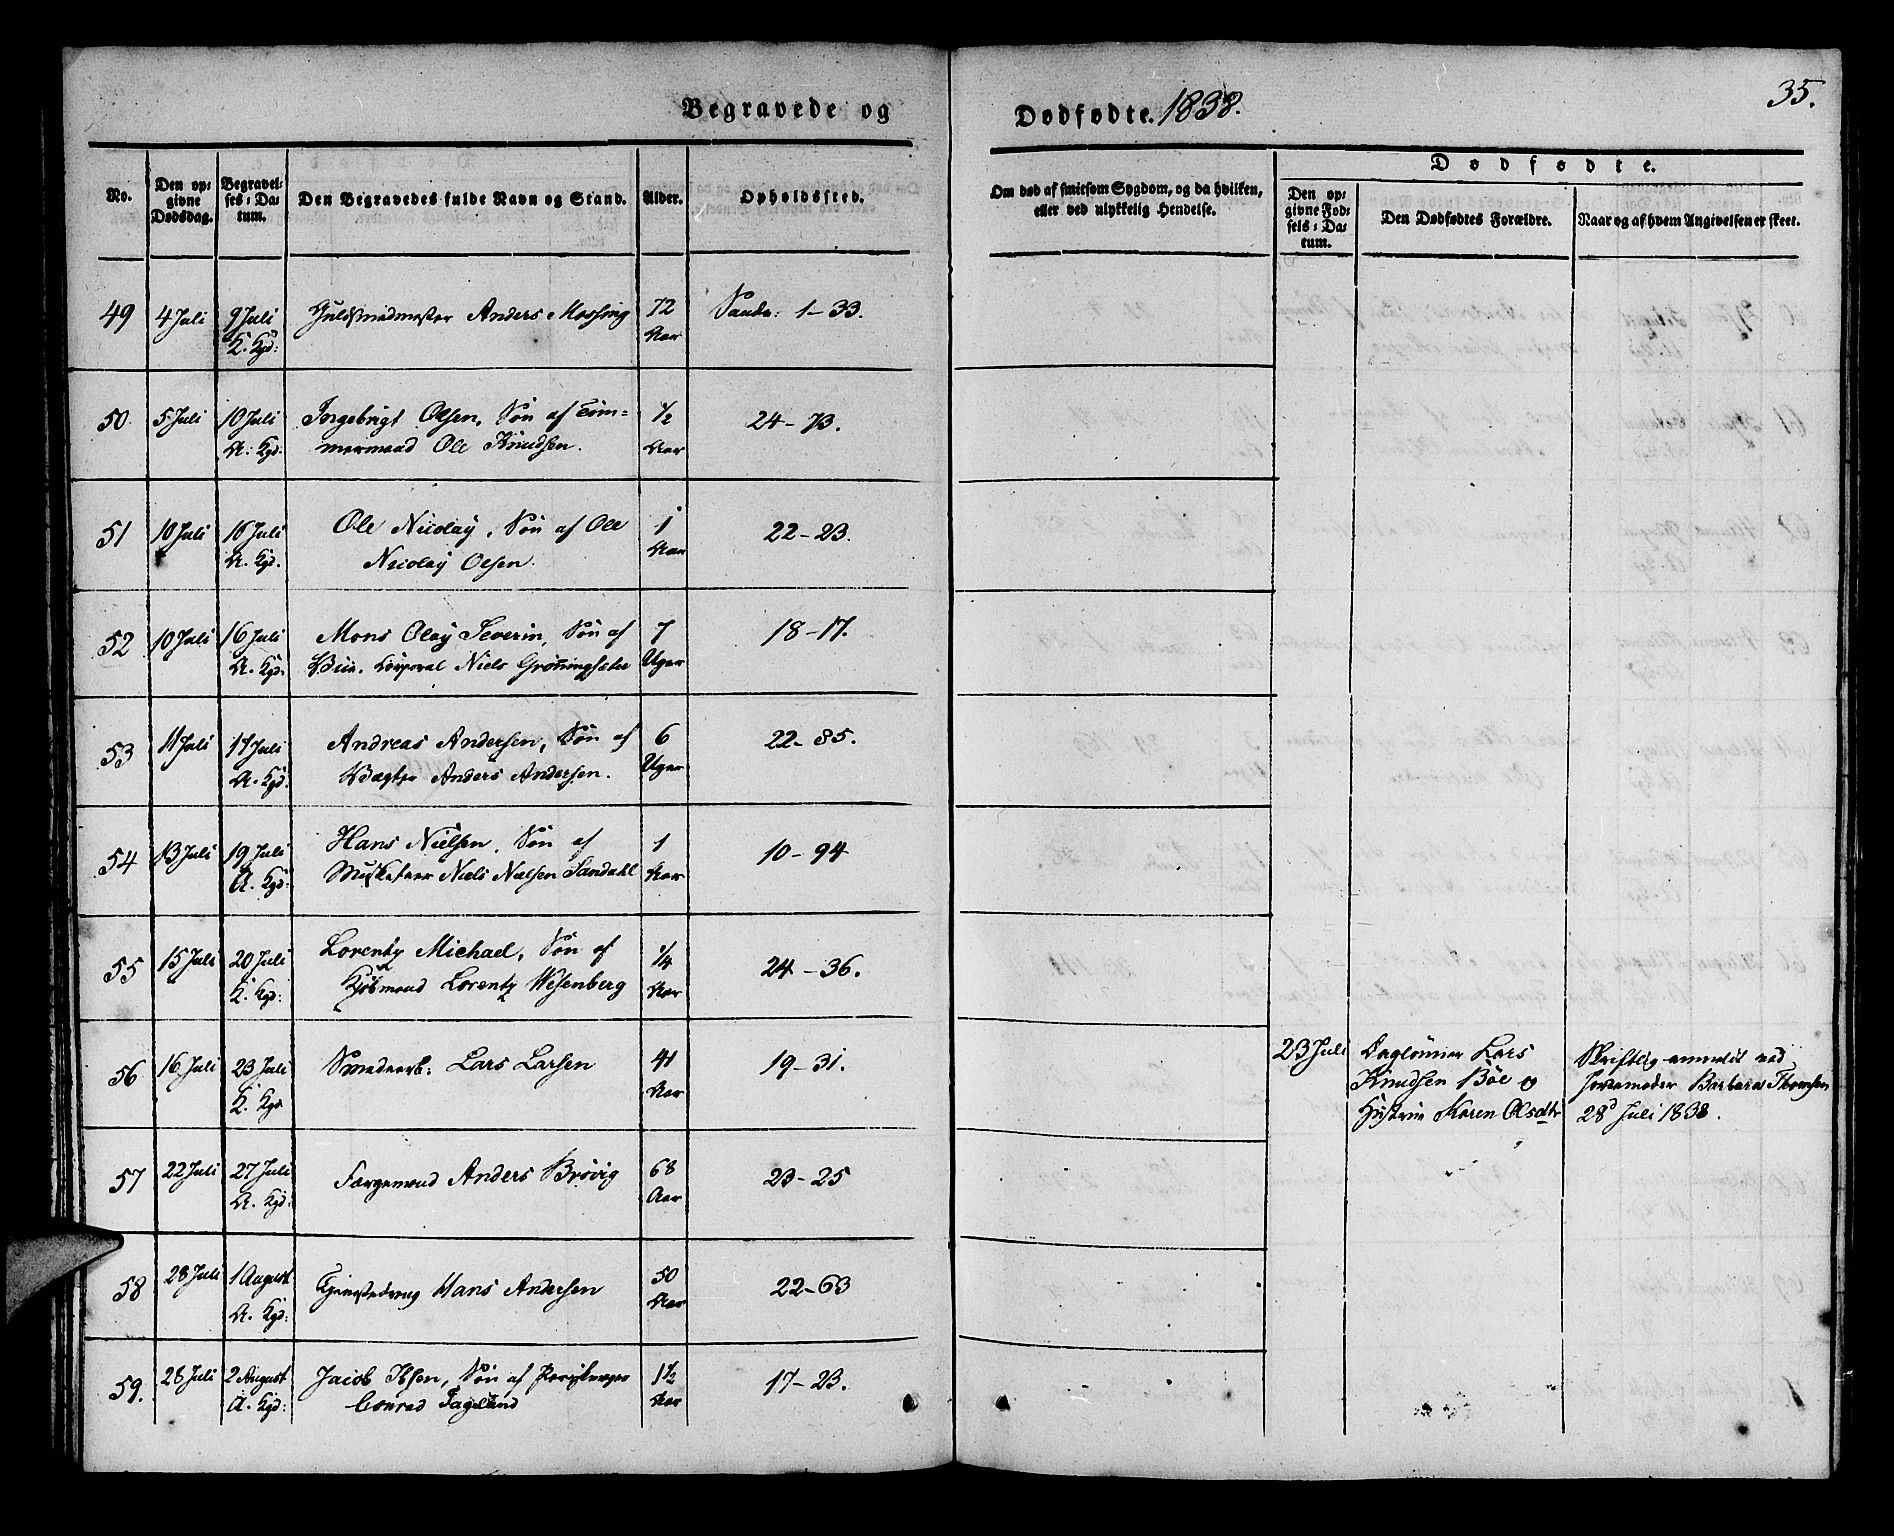 Begravede og
Dødfødte. 1838.
35.
No.
Den op=
givne
Dødsdag.
Begravel=
ses=Da=
tum.
Den Begravedes fulde Navn og Stand.
Alder.
Opholdssted.
Om død af smitsom Sygdom, og da hvilken,
eller ved ulykkelig Hendelse.
Dødfødte.
Den op=
givne Fød=
sels=Da=
tum.
Den Dødfødtes Forældre.
Naar og af hvem Angivelsen er skeet.
49 4 Juli 9 Juli Guldsmedmester Anders Mossing 72 Sandv: 1-33.
K. Kgd: Aar
50. 5 Juli 10 Juli Ingebrigt Olsen, Søn af Tøm= 1/2 24-73.
A: Kgd: mermand Ole Knudsen. Aar
51 10 Juli 16 Juli Ole Nicolay, Søn af Ole 1 22-23.
A. Kgd. Nicolay Olsen. Aar
52 10 Juli 16 Juli Mons Olay Severin, Søn af 7 18-17.
A. Kgd. Corporal Niels Uger
53 11 Juli 17 Juli Andreas Andersen, Søn af 6 22-85.
A. Kgd: Vægter Anders Andersen. Uger
54 13 Juli 19 Juli Hans Nielsen, Søn af 1 10-94
A. Kgd: Musketeer Niels Nielsen Sandahl Aar
55 15 Juli 20 Juli Lorentz Michael, Søn af 1/4 24-36.
K. Kgd: Kjøbmand Lorentz Wesenberg Aar
56 16 Juli 23 Juli Smedearb: Lars Larsen 41 19-31.
K. Kgd Aar
23 Juli Daglønner Lars
Knudsen Böe og
Hustrue Karen Olsdtr
Skriftlig anmeldt ved
Jordemoder Barbara Thomsen
28d Juli 1838.
57 22 Juli 27 Juli Færgemand Anders Brövig 68 23-25
A. Kgd: Aar
58 28 Juli 1 August Hans Andersen 50 22-63
A. Kgd: Aar
59. 28 Juli 2 August Jacob Ibsen, Søn af 1 1/2 17-23.
A. Kgd: Conrad Fagelund Aar